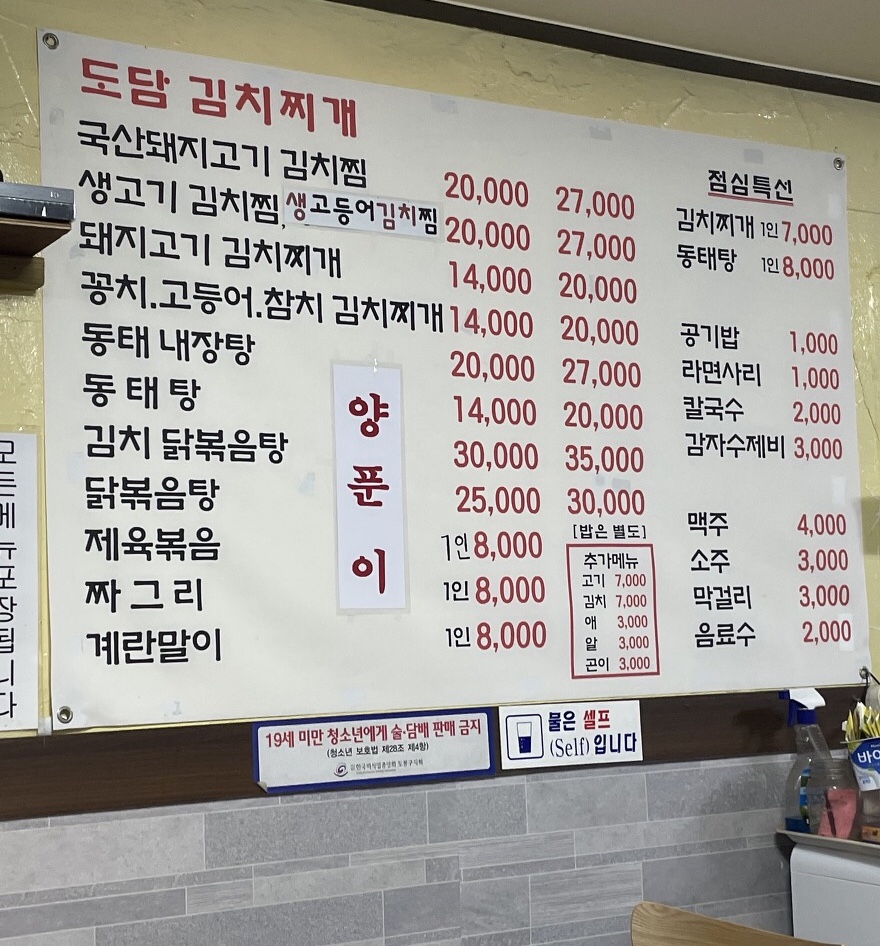 도담 김치찌개
국산돼지고기 김치찜 20,000 27,000
생고기 김치찜, 생고등어김치찜 20,000 27,000
돼지고기 김치찌개 14,000 20,000
꽁치.고등어.참치 김치찌개 14,000 20,000
동태 내장탕 20,000 27,000
동태탕 14,000 20,000
김치 닭볶음탕 30,000 35,000
닭볶음탕 25,000 30,000
제육볶음 1인 8,000
짜그리 1인 8,000
계란말이 1인 8,000
양푼이
[밥은 별도]
추가메뉴
고기 7,000
김치 7,000
애 3,000
알 3,000
곤이 3,000
점심특선
김치찌개 1인 7,000
동태탕 1인 8,000
공기밥 1,000
라면사리 1,000
칼국수 2,000
감자수제비 3,000
맥주 4,000
소주 3,000
막걸리 3,000
음료수 2,000
모든메뉴포장됩니다
19세 미만 청소년에게 술·담배 판매 금지
(청소년 보호법 제28조 제4항)
물은 셀프
(Self)입니다